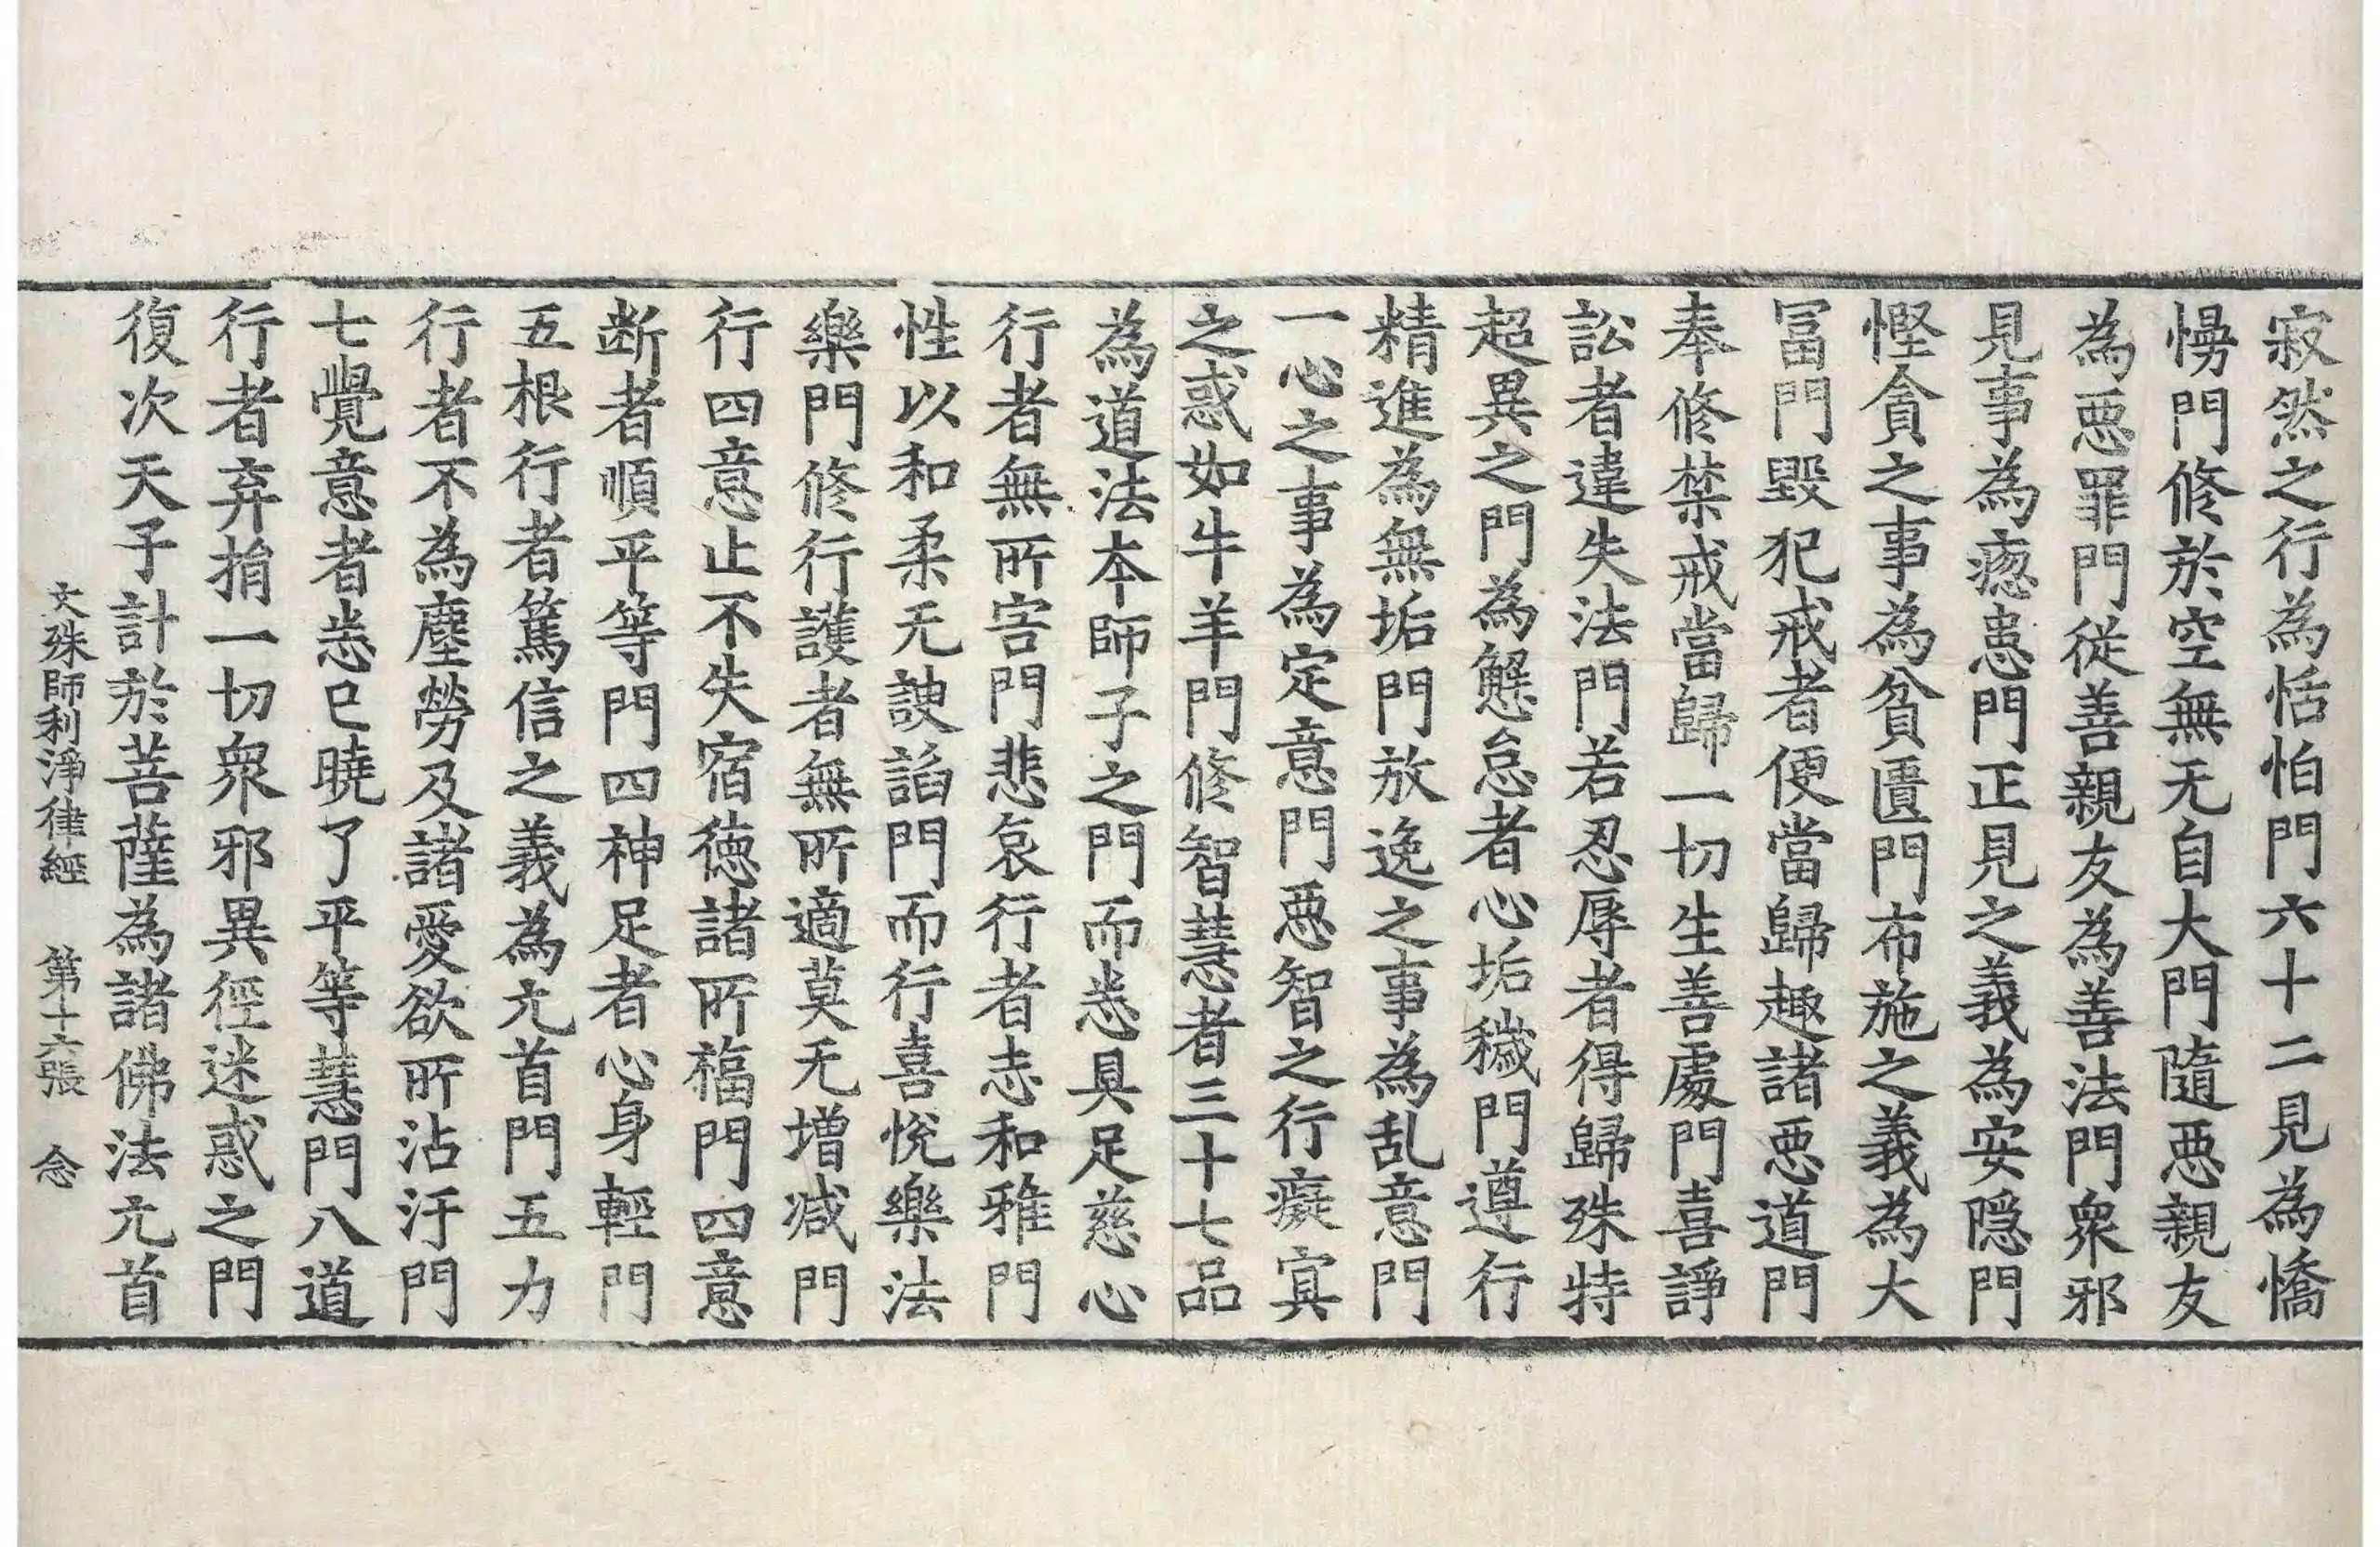 寂然之行為恬怕門六十二見為憍
慢門修於空無无自大門隨惡親友
為惡罪門從善親友為善法門衆邪
見事為瘛恚門正見之義為安隱門
慳貪之事為貧匱門布施之義為大
冨門毀犯戒者便當歸趣諸惡道門
奉修禁戒當歸一切生善處門喜諍
訟者違失法門若忍辱者得歸殊特
超異之門為懈怠者心垢穢門遵行
精進為無垢門放逸之事為乱意門
一心之事為定意門惡智之行癡冥
之惑如牛羊門修智慧者三十七品
為道法本師子之門而悉具足慈心
行者無所害門悲哀行者志和雅門
性以和柔无諛諂門而行喜悅樂法
樂門修行護者無所適莫无增減門
行四意止不失宿德諸所福門四意
断者順平等門四神足者心身輕門
五根行者篤信之義為元首門五力
行者不為塵勞及諸愛欲所沾汙門
七覺意者悉已曉了平等慧門八道
行者弃捐一切衆邪異徑迷惑之門
復次天子計於菩薩為諸佛法元首
文殊師利淨律經 第十六張 念